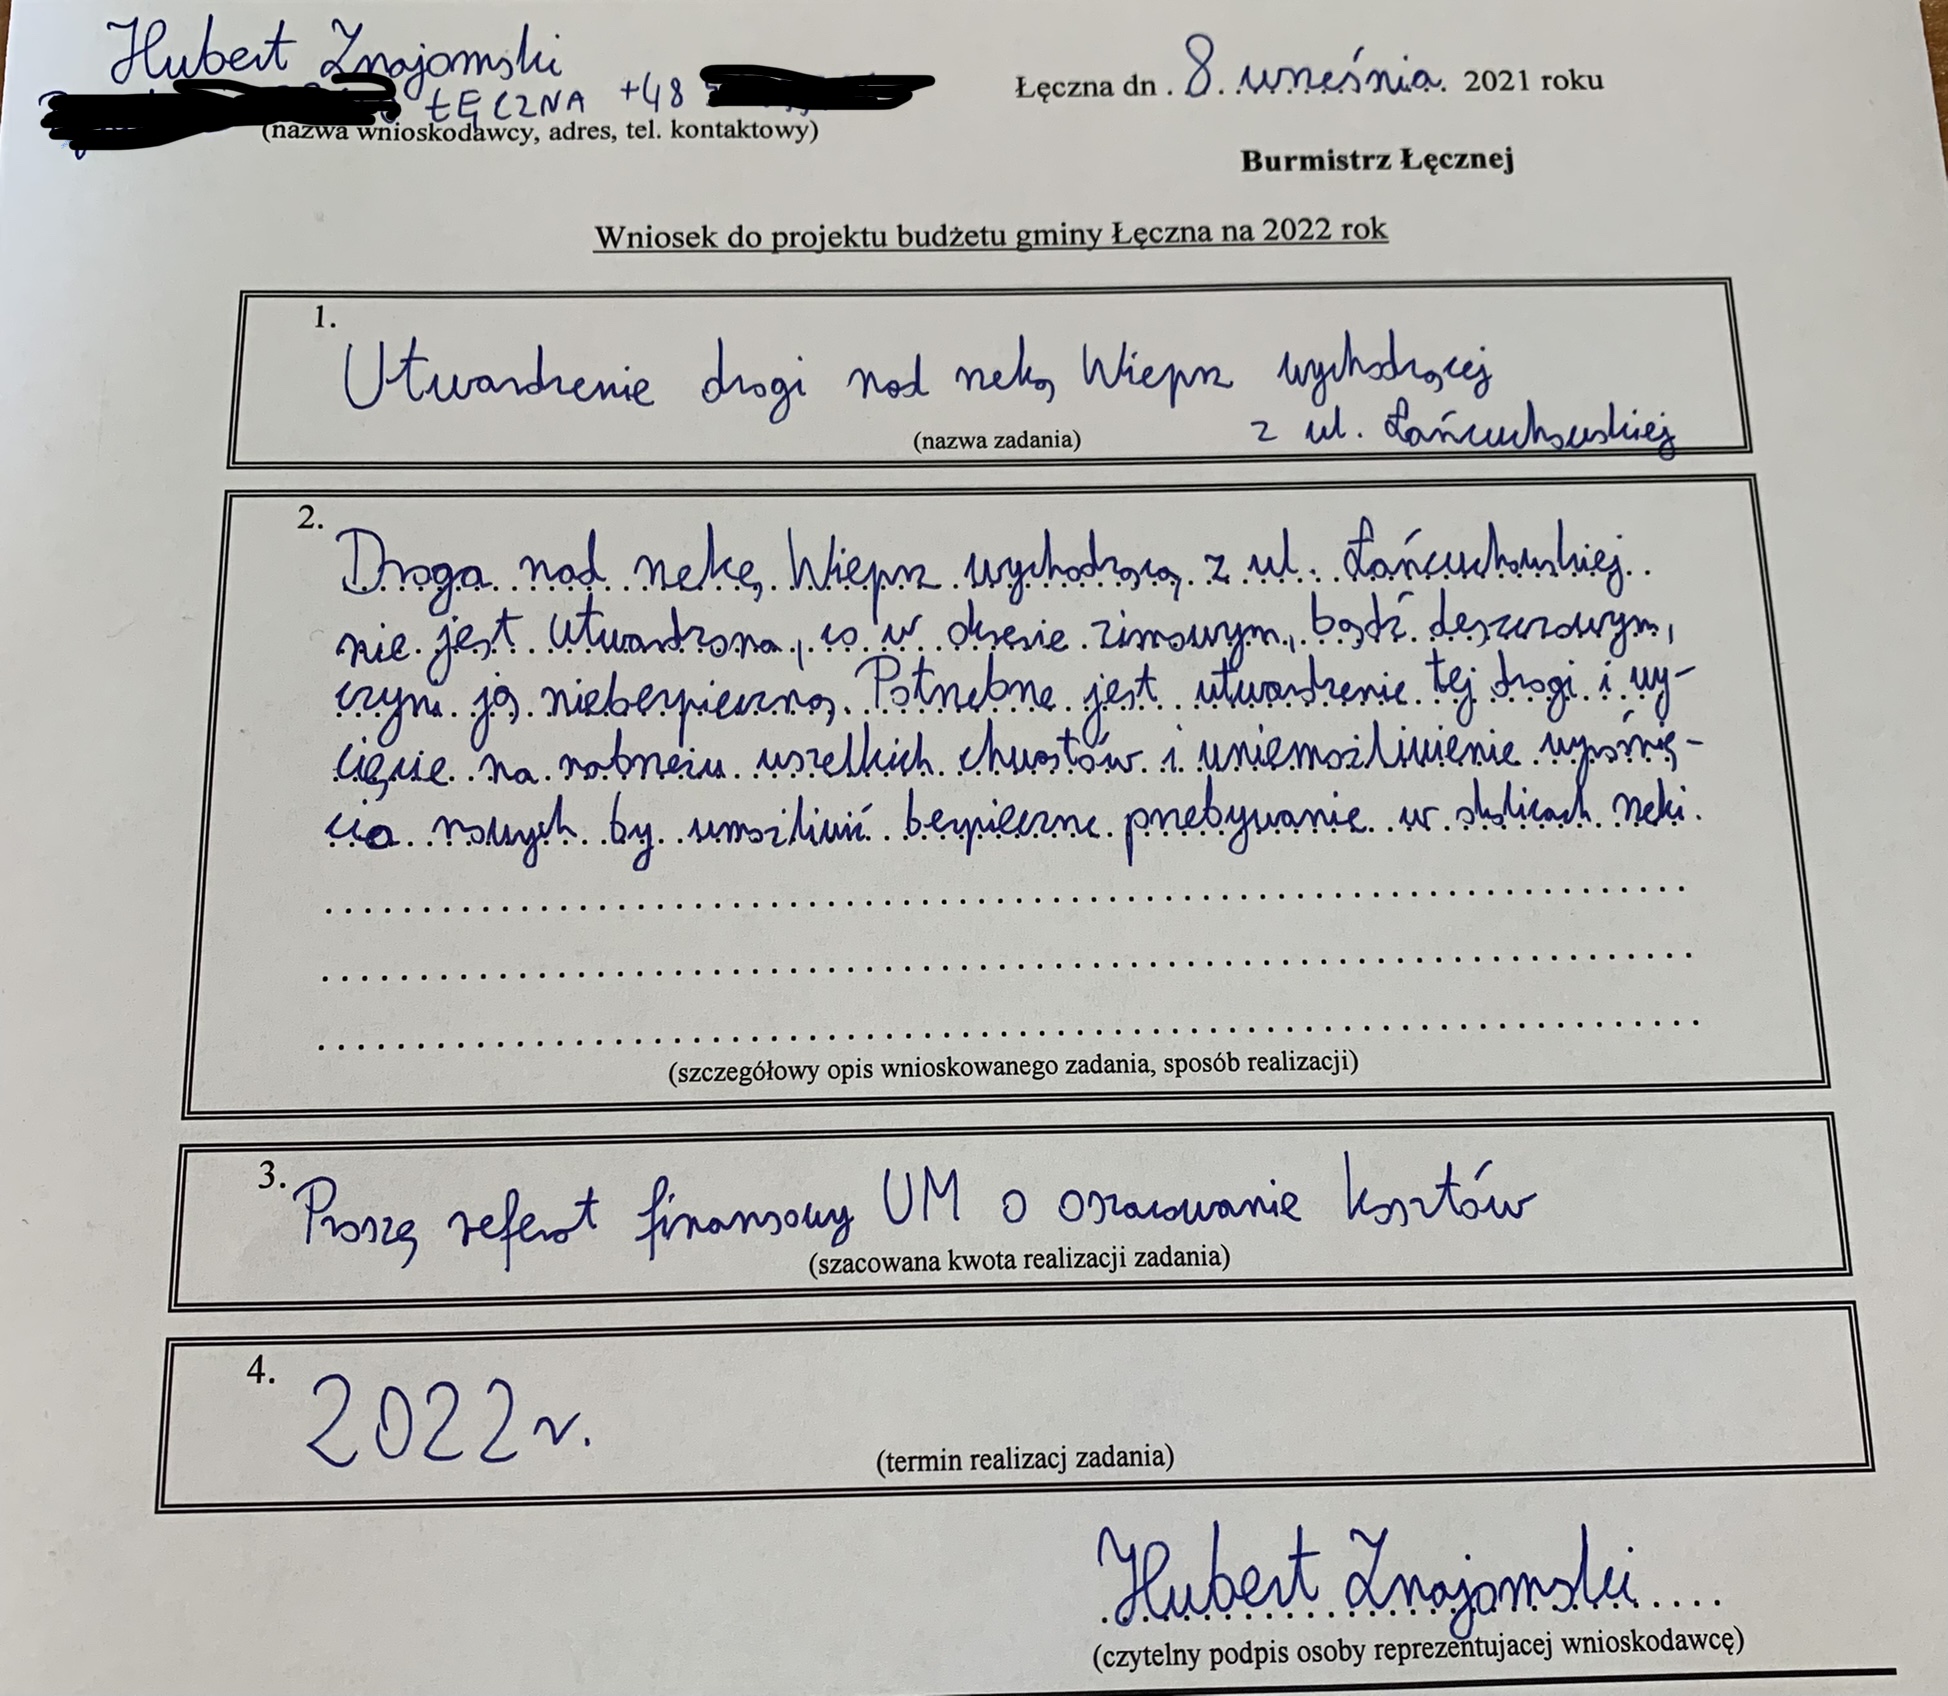 Hubert Znajomski
ŁĘCZNA +48
(nazwa wnioskodawcy, adres, tel. kontaktowy)
Łęczna dn. 8 września 2021 roku
Burmistrz Łęcznej
Wniosek do projektu budżetu gminy Łęczna na 2022 rok
1.
Utwardzenie drogi nad rzekę Wieprz wychodzącej
z ul. Łańcuchowskiej
(nazwa zadania)
2.
Droga nad rzekę Wieprz wychodzącą z ul. Łańcuchowskiej
nie jest utwardzona, co w okresie zimowym, bądź deszczowym,
czyni ją niebezpieczną. Potrzebne jest utwardzenie tej drogi i wy-
cięcie na nabrzeżu wszelkich chwastów i uniemożliwienie wyrośnię-
cia nowych by umożliwić bezpieczne przebywanie w okolicach rzeki.
(szczegółowy opis wnioskowanego zadania, sposób realizacji)
3.
Proszę referat finansowy UM o oszacowanie kosztów
(szacowana kwota realizacji zadania)
4.
2022r.
(termin realizacj zadania)
Hubert Znajomski
(czytelny podpis osoby reprezentujacej wnioskodawcę)